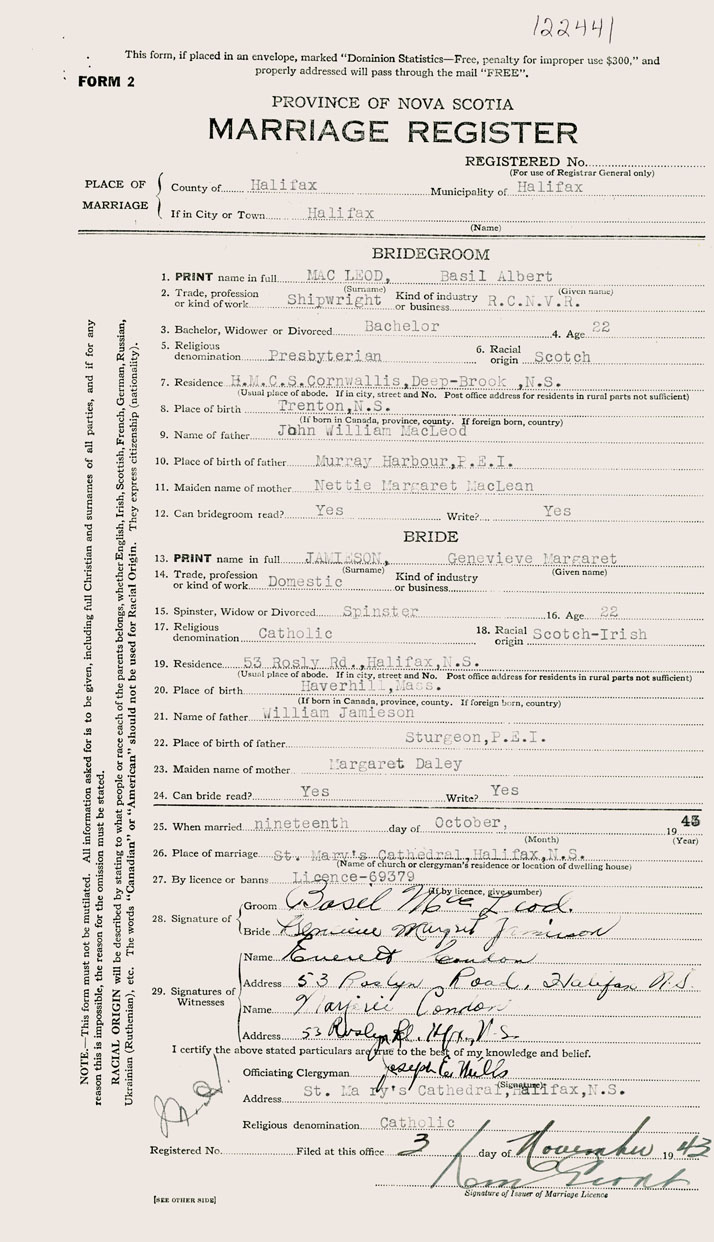 122441
This form, if placed in an envelope, marked "Dominion Statistics—Free, penalty for improper use $300," and
properly addressed will pass through the mail "FREE".
FORM 2
PROVINCE OF NOVA SCOTIA
MARRIAGE REGISTER
REGISTERED No.
(For use of Registrar General only)
PLACE OF MARRIAGE
County of Halifax Municipality of Halifax
If in City or Town Halifax
(Name)
BRIDEGROOM
1. PRINT name in full MAC LEOD, Basil Albert
(Surname) (Given name)
2. Trade, profession or kind of work Shipwright Kind of industry or business R.C.N.V.R.
3. Bachelor, Widower or Divorced Bachelor 4. Age 22
5. Religious denomination Presbyterian 6. Racial origin Scotch
7. Residence H.M.C.S.Cornwallis,Deep-Brook ,N.S.
(Usual place of abode. If in city, street and No. Post office address for residents in rural parts not sufficient)
8. Place of birth Trenton,N.S.
(If born in Canada, province, county. If foreign born, country)
9. Name of father John William MacLeod
10. Place of birth of father Murray Harbour,P.E.I.
11. Maiden name of mother Nettie Margaret MacLean
12. Can bridegroom read? Yes Write? Yes
BRIDE
13. PRINT name in full JAMIESON, Genevieve Margaret
(Surname) (Given name)
14. Trade, profession or kind of work Domestic Kind of industry or business
15. Spinster, Widow or Divorced Spinster 16. Age 22
17. Religious denomination Catholic 18. Racial origin Scotch-Irish
19. Residence 53 Rosly Rd.,Halifax,N.S.
(Usual place of abode. If in city, street and No. Post office address for residents in rural parts not sufficient)
20. Place of birth Haverhill,Mass.
(If born in Canada, province, county. If foreign born, country)
21. Name of father William Jamieson
22. Place of birth of father Sturgeon,P.E.I.
23. Maiden name of mother Margaret Daley
24. Can bride read? Yes Write? Yes
25. When married nineteenth day of October, 1943
(Month) (Year)
26. Place of marriage St. Mary's Cathedral,Halifax,N.S.
(Name of church or clergyman's residence or location of dwelling house)
27. By licence or banns Licence-69379
(If by licence, give number)
28. Signature of
Groom Basel MacLeod.
Bride Genevieve Margret Jamieson
29. Signatures of Witnesses
Name Everett Condon
Address 53 Roslyn Road, Halifax N.S.
Name Marjorie Condon
Address 53 Roslyn Rd. Hfx, N.S.
I certify the above stated particulars are true to the best of my knowledge and belief.
Officiating Clergyman Joseph E. Mills
(Signature)
Address St. Mary's Cathedral,Halifax,N.S.
Religious denomination Catholic
Registered No. Filed at this office 3 day of November 1943
Signature of Issuer of Marriage Licence
[SEE OTHER SIDE]
NOTE.—This form must not be mutilated. All information asked for is to be given, including full Christian and surnames of all parties, and if for any
reason this is impossible, the reason for the omission must be stated.
RACIAL ORIGIN will be described by stating to what people or race each of the parents belongs, whether English, Irish, Scottish, French, German, Russian,
Ukrainian (Ruthenian), etc. The words "Canadian" or "American" should not be used for Racial Origin. They express citizenship (nationality).